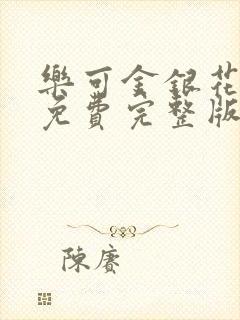 樂可金銀花
免費完整版
陳賡